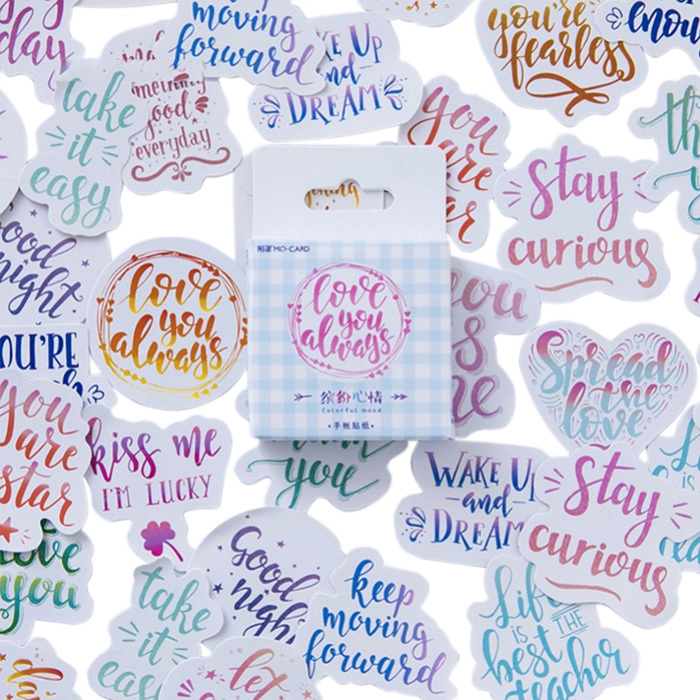 day
moving
forward
KE UP
and
DREAM
you're
fearless
enou
take
it
easy
good
everyday
you
are
ar
th
stay
curious
MO·CARD
love
you
always
缤纷心情
Colorful mood
·手帐贴纸·
love
you
always
ood
night.
OU'RE
you
s
ne
Spread
the
love
you
are
star
kiss me
I'M LUCKY
you
WAKE UP
and
DREAM
Stay
curious
ove
you
Good
nigh
take
it
eas
keep
moving
forward
Life
IS THE
best
teacher
let